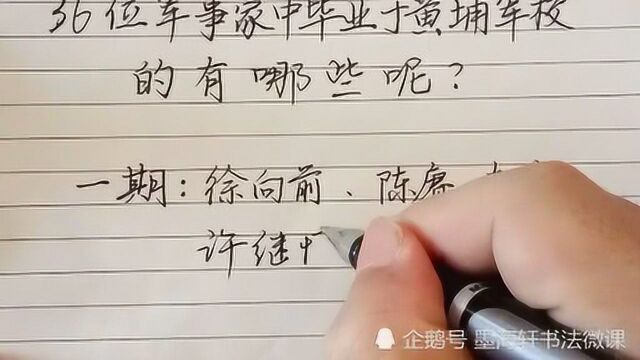 36位军事家中毕业于黄埔军校
的有哪些呢？
一期：徐向前、陈赓
许继
企鹅号 墨海轩书法微课